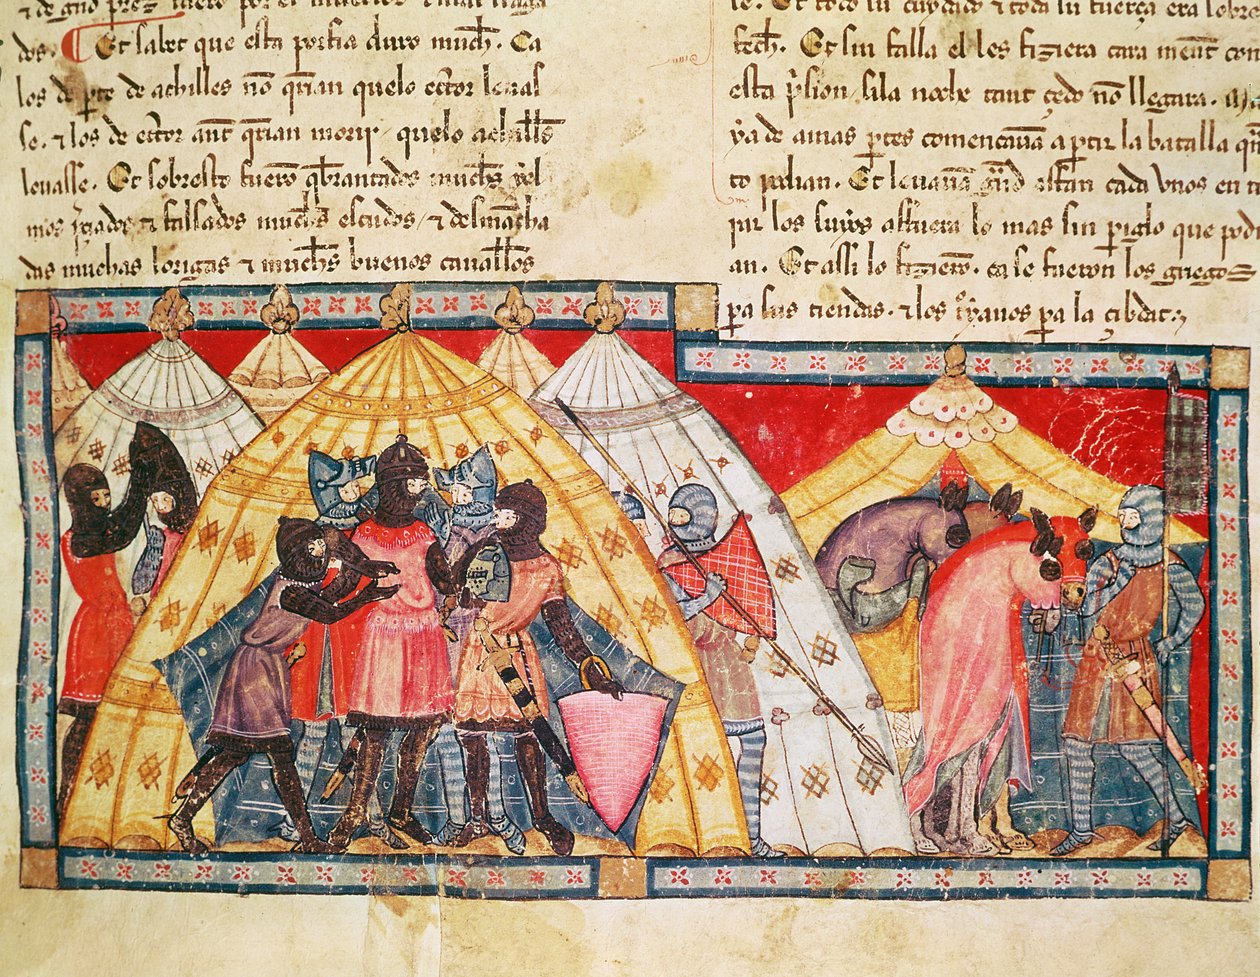 dos. Et sabet que esta porfia duro much. Ca
los de pte de achilles nō qrian quelo ector leuas
se. τ los de ector ant qrian morir quelo achills
leuasse. Et sobresto fuerō qbrantados muchs yel
mos pçiados τ falsados muchs escudos τ desmācha
das muchas lorigas τ muchs buenos cauallos
te. Et todo su cuydado τ toda su fuerça era sobre
Et sin falla el les fiziera cara ment con
esta prision sila noche tant çedo nō llegara.
ya de amas ptes començauā a partir la batalla
to podian. Et leuauā grād affan cada vnos en ti
rar los suyos affuera lo mas sin piglo que podi
an. Et assi lo fizierō. ca se fueron los griegos
pa sus tiendas. τ los troyanos pa la çibdat